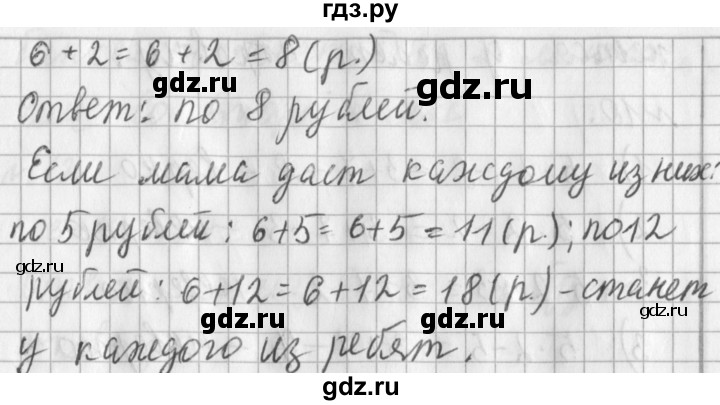 гдз.ру
6 + 2 = 6 + 2 = 8 (р.)
gdz.ru
gdz.ru
Ответ: по 8 рублей.
Если мама даст каждому из них:
по 5 рублей: 6+5 = 6+5 = 11 (р.); по 12
gdz.ru
gdz.ru
рублей: 6+12 = 6+12 = 18 (р.) - станет
gdz.ru
gdz.ru
у каждого из ребят.
gdz.ru